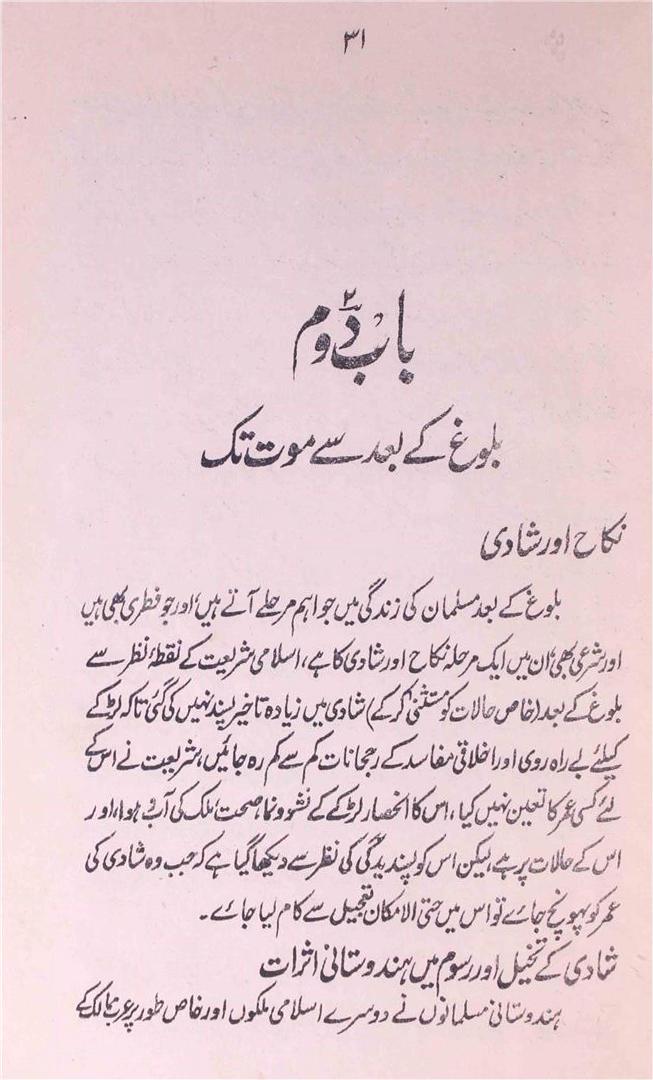 ۳۱
باب دوم
۲
بلوغ کے بعد سے موت تک
نکاح اور شادی
بلوغ کے بعد مسلمان کی زندگی میں جو اہم مرحلے آتے ہیں، اور جو فطری بھی ہیں
اور شرعی بھی، ان میں ایک مرحلہ نکاح اور شادی کا ہے، اسلامی شریعت کے نقطۂ نظر سے
بلوغ کے بعد (خاص حالات کو مستثنیٰ کر کے) شادی میں زیادہ تاخیر پسند نہیں کی گئی تاکہ لڑکے
کیلئے بے راہ روی اور اخلاقی مفاسد کے رجحانات کم سے کم رہ جائیں، شریعت نے اس کے
لئے کسی عمر کا تعین نہیں کیا، اس کا انحصار لڑکے کے نشوونما، صحت، ملک کی آب و ہوا، اور
اس کے حالات پر ہے، لیکن اس کو پسندیدگی کی نظر سے دیکھا گیا ہے کہ جب وہ شادی کی
عمر کو پہونچ جائے تو اس میں حتی الامکان تعجیل سے کام لیا جائے۔
شادی کے تخیل اور رسوم میں ہندوستانی اثرات
ہندوستانی مسلمانوں نے دوسرے اسلامی ملکوں اور خاص طور پر عرب ممالک کے